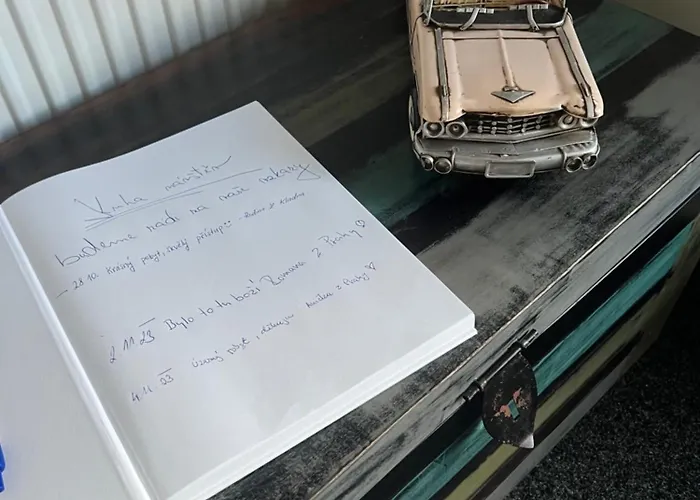 Kniha návštěv
budeme rádi za vaše vzkazy
- 28.10. Krásný pobyt, skvělý přístup :-) Radim z Kladna
2.11.23 Bylo to tu boží Romana z Prahy ♡
4.11.23 Úžasný pobyt, děkujeme z Prahy ♡